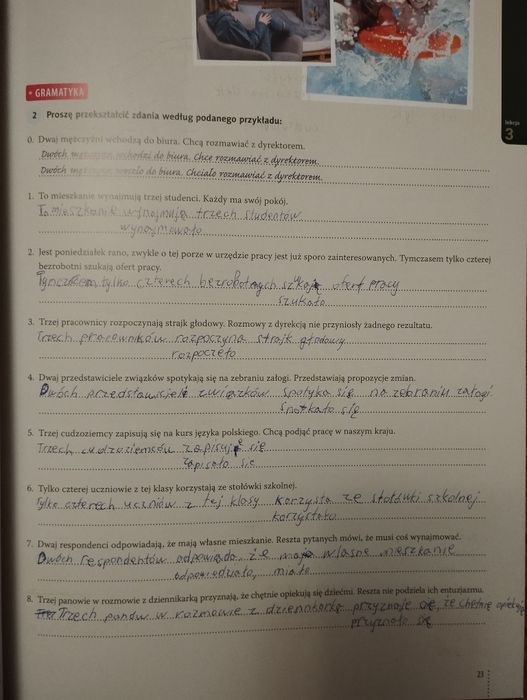 • GRAMATYKA
lekcja
3
2 Proszę przekształcić zdania według podanego przykładu:
0. Dwaj mężczyźni wchodzą do biura. Chcą rozmawiać z dyrektorem.
Dwóch mężczyzn wchodzi do biura. Chce rozmawiać z dyrektorem.
Dwóch mężczyzn weszło do biura. Chciało rozmawiać z dyrektorem.
1. To mieszkanie wynajmują trzej studenci. Każdy ma swój pokój.
To mieszkanie wynajmują trzech studentów
wynajmowało
2. Jest poniedziałek rano, zwykle o tej porze w urzędzie pracy jest już sporo zainteresowanych. Tymczasem tylko czterej
bezrobotni szukają ofert pracy.
Tymczasem tylko czterech bezrobotnych szuka ofert pracy
szukało
3. Trzej pracownicy rozpoczynają strajk głodowy. Rozmowy z dyrekcją nie przyniosły żadnego rezultatu.
Trzech pracowników rozpoczyna strajk głodowy
rozpoczęło
4. Dwaj przedstawiciele związków spotykają się na zebraniu załogi. Przedstawiają propozycje zmian.
Dwóch przedstawicieli związków spotyka się na zebraniu załogi
spotkało się
5. Trzej cudzoziemcy zapisują się na kurs języka polskiego. Chcą podjąć pracę w naszym kraju.
Trzech cudzoziemców zapisuje się
zapisało się
6. Tylko czterej uczniowie z tej klasy korzystają ze stołówki szkolnej.
Tylko czterech uczniów z tej klasy korzysta ze stołówki szkolnej
korzystało
7. Dwaj respondenci odpowiadają, że mają własne mieszkanie. Reszta pytanych mówi, że musi coś wynajmować.
Dwóch respondentów odpowiada że maja własne mieszkanie
odpowiedziało, miało
8. Trzej panowie w rozmowie z dziennikarką przyznają, że chętnie opiekują się dziećmi. Reszta nie podziela ich entuzjazmu.
Trzech panów w rozmowie z dziennikarką przyznaje się, że chętnie
przyznało się
23